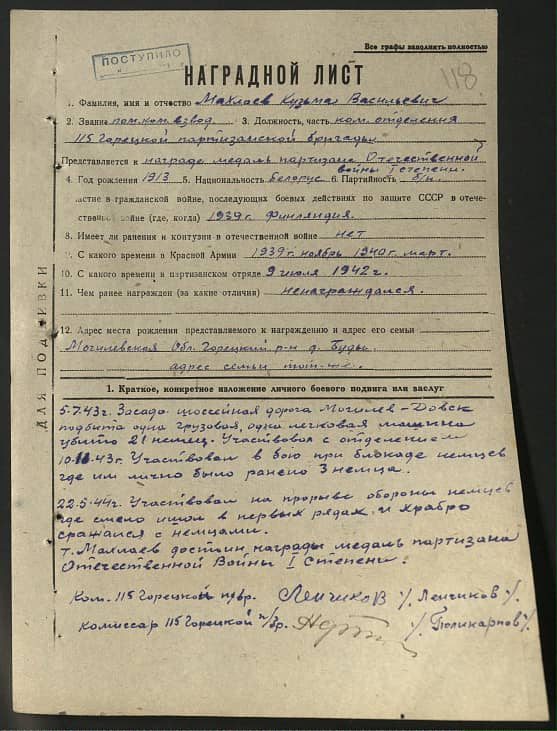 Все графы заполнять полностью
ПОСТУПИЛО
118
НАГРАДНОЙ ЛИСТ
1. Фамилия, имя и отчество Махлаев Кузьма Васильевич
2. Звание пом.ком.взвод. 3. Должность, часть ком.отделения
115 Горецкой партизанской бригады
Представляется к награде медаль партизана Отечественной
войны I степени.
4. Год рождения 1913 5. Национальность белорус 6. Партийность б/п
астие в гражданской войне, последующих боевых действиях по защите СССР в отече-
ственной войне (где, когда) 1939г. Финляндия.
8. Имеет ли ранения и контузии в отечественной войне нет
9. С какого времени в Красной Армии 1939г. ноябрь 1940г. март.
10. С какого времени в партизанском отряде 9 июля 1942г.
11. Чем ранее награжден (за какие отличия) ненаграждался.
12. Адрес места рождения представляемого к награждению и адрес его семьи
Могилевская Обл. Горецкий р-н д. Буды.
адрес семьи тот-же.
ДЛЯ ПОДШИВКИ
1. Краткое, конкретное изложение личного боевого подвига или заслуг
5.7.43г. Засада шоссейная дорога Могилев–Довск
подбита одна грузовая, одна легковая машина
убито 21 немец. Участвовал с отделением
43г. Участвовал в бою при блокаде немцев
где им лично было ранено 3 немца.
22.5.44г. Участвовал на прорыве обороны немцев
где смело ишол в первых рядах и храбро
сражался с немцами.
т. Маллаев достоин награды медаль партизана
Отечественной Войны I Степени.
Ком. 115 Горецкой п/бр. Ленчиков /. Ленчиков /.
Комиссар 115 Горецкой п/бр. /. Поликарпов /.